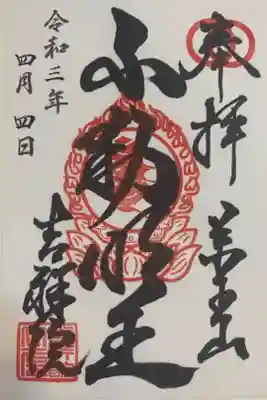 奉拝
美玉山
不動明王
吉祥院
令和三年
四月四日